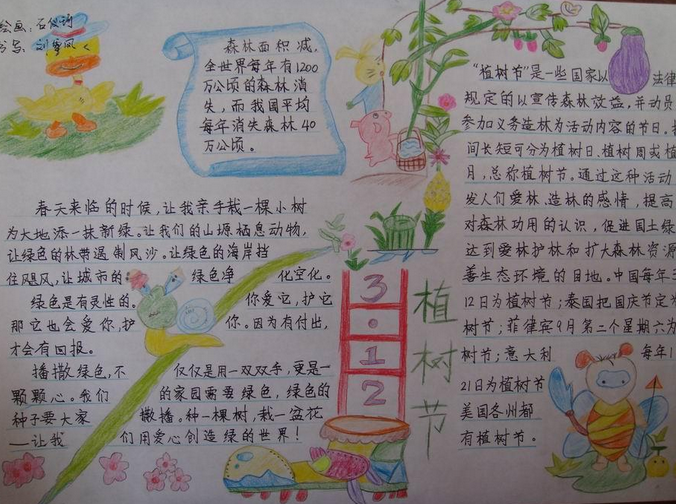 绘画:石俊琦
书写:刘雪凤
森林面积减,
全世界每年有1200
万公顷的森林消
失,而我国平均
每年消失森林40
万公顷。
春天来临的时候,让我亲手栽一棵小树
为大地添一抹新绿。让我们的山塬栖息动物,
让绿色的林带遏制风沙。让绿色的海岸挡
住飓风,让城市的绿色净化空化。
绿色是有灵性的。你爱它,护它
那它也会爱你,护你。因为有付出,
才会有回报。
播撒绿色,不仅仅是用一双双手,更是一
颗颗心。我们的家园需要绿色,绿色的
种子要大家撒播。种一棵树,栽一盆花
——让我们用爱心创造绿的世界!
3·12
植树节
“植树节”是一些国家以法律
规定的以宣传森林效益,并动员
参加义务造林为活动内容的节日。按
间长短可分为植树日、植树周或植
月,总称植树节。通过这种活动
发人们爱林、造林的感情,提高
对森林功用的认识,促进国土绿
达到爱林护林和扩大森林资源
善生态环境的目地。中国每年3
12日为植树节;泰国把国庆节定为
树节;菲律宾9月第二个星期六为
树节;意大利每年1
21日为植树节
美国各州都
有植树节。